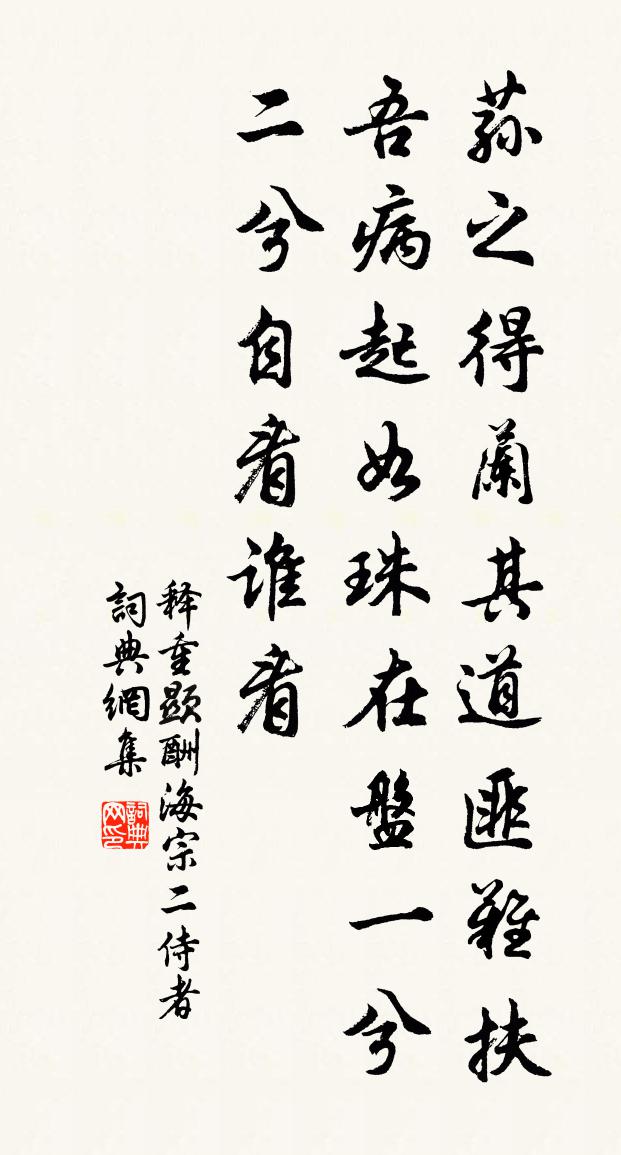 蓀之得蘭其道匪難扶
吾病起如珠在盤一兮
二兮自看誰看
释重顯酬海宗二侍者
詞典網集
詞典网印